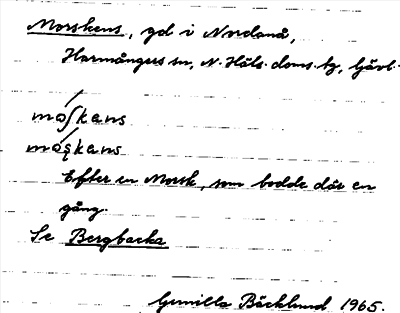 Morskens, gd i Nordanå,
Harmångers sn, N. Häls. doms. tg, Gävl.
moʃkens
mos̨kens
Efter en Morsk, som bodde där en
gång.
Se Bergbacka
Gunilla Bäcklund 1965.